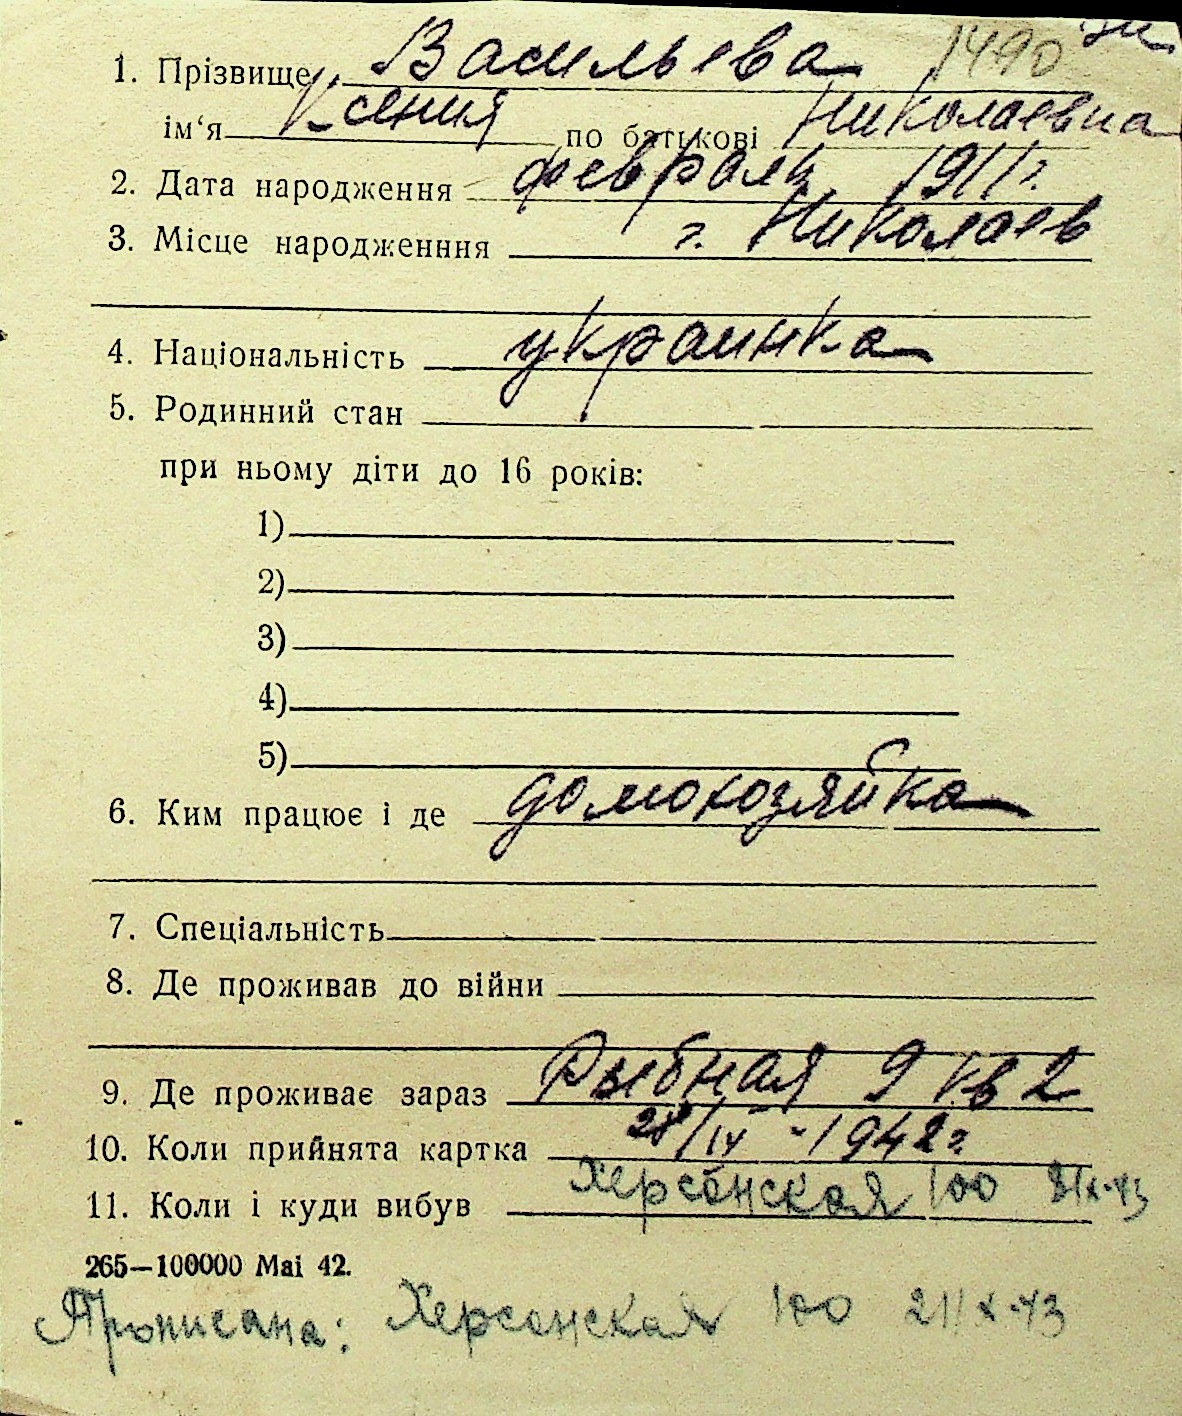 1490
1. Прізвище Васильева
ім‘я Ксения по батькові Николаевна
2. Дата народження февраль 1911 г.
3. Місце народженння г. Николаев
4. Національність украинка
5. Родинний стан
при ньому діти до 16 років:
1)
2)
3)
4)
5)
6. Ким працює і де домохозяйка
7. Спеціальність
8. Де проживав до війни
9. Де проживає зараз Рыбная 9 кв 2
10. Коли прийнята картка 28/IV - 1942 г.
11. Коли і куди вибув Херсонская 100
265—100000 Mai 42.
Прописана: Херсонская 100